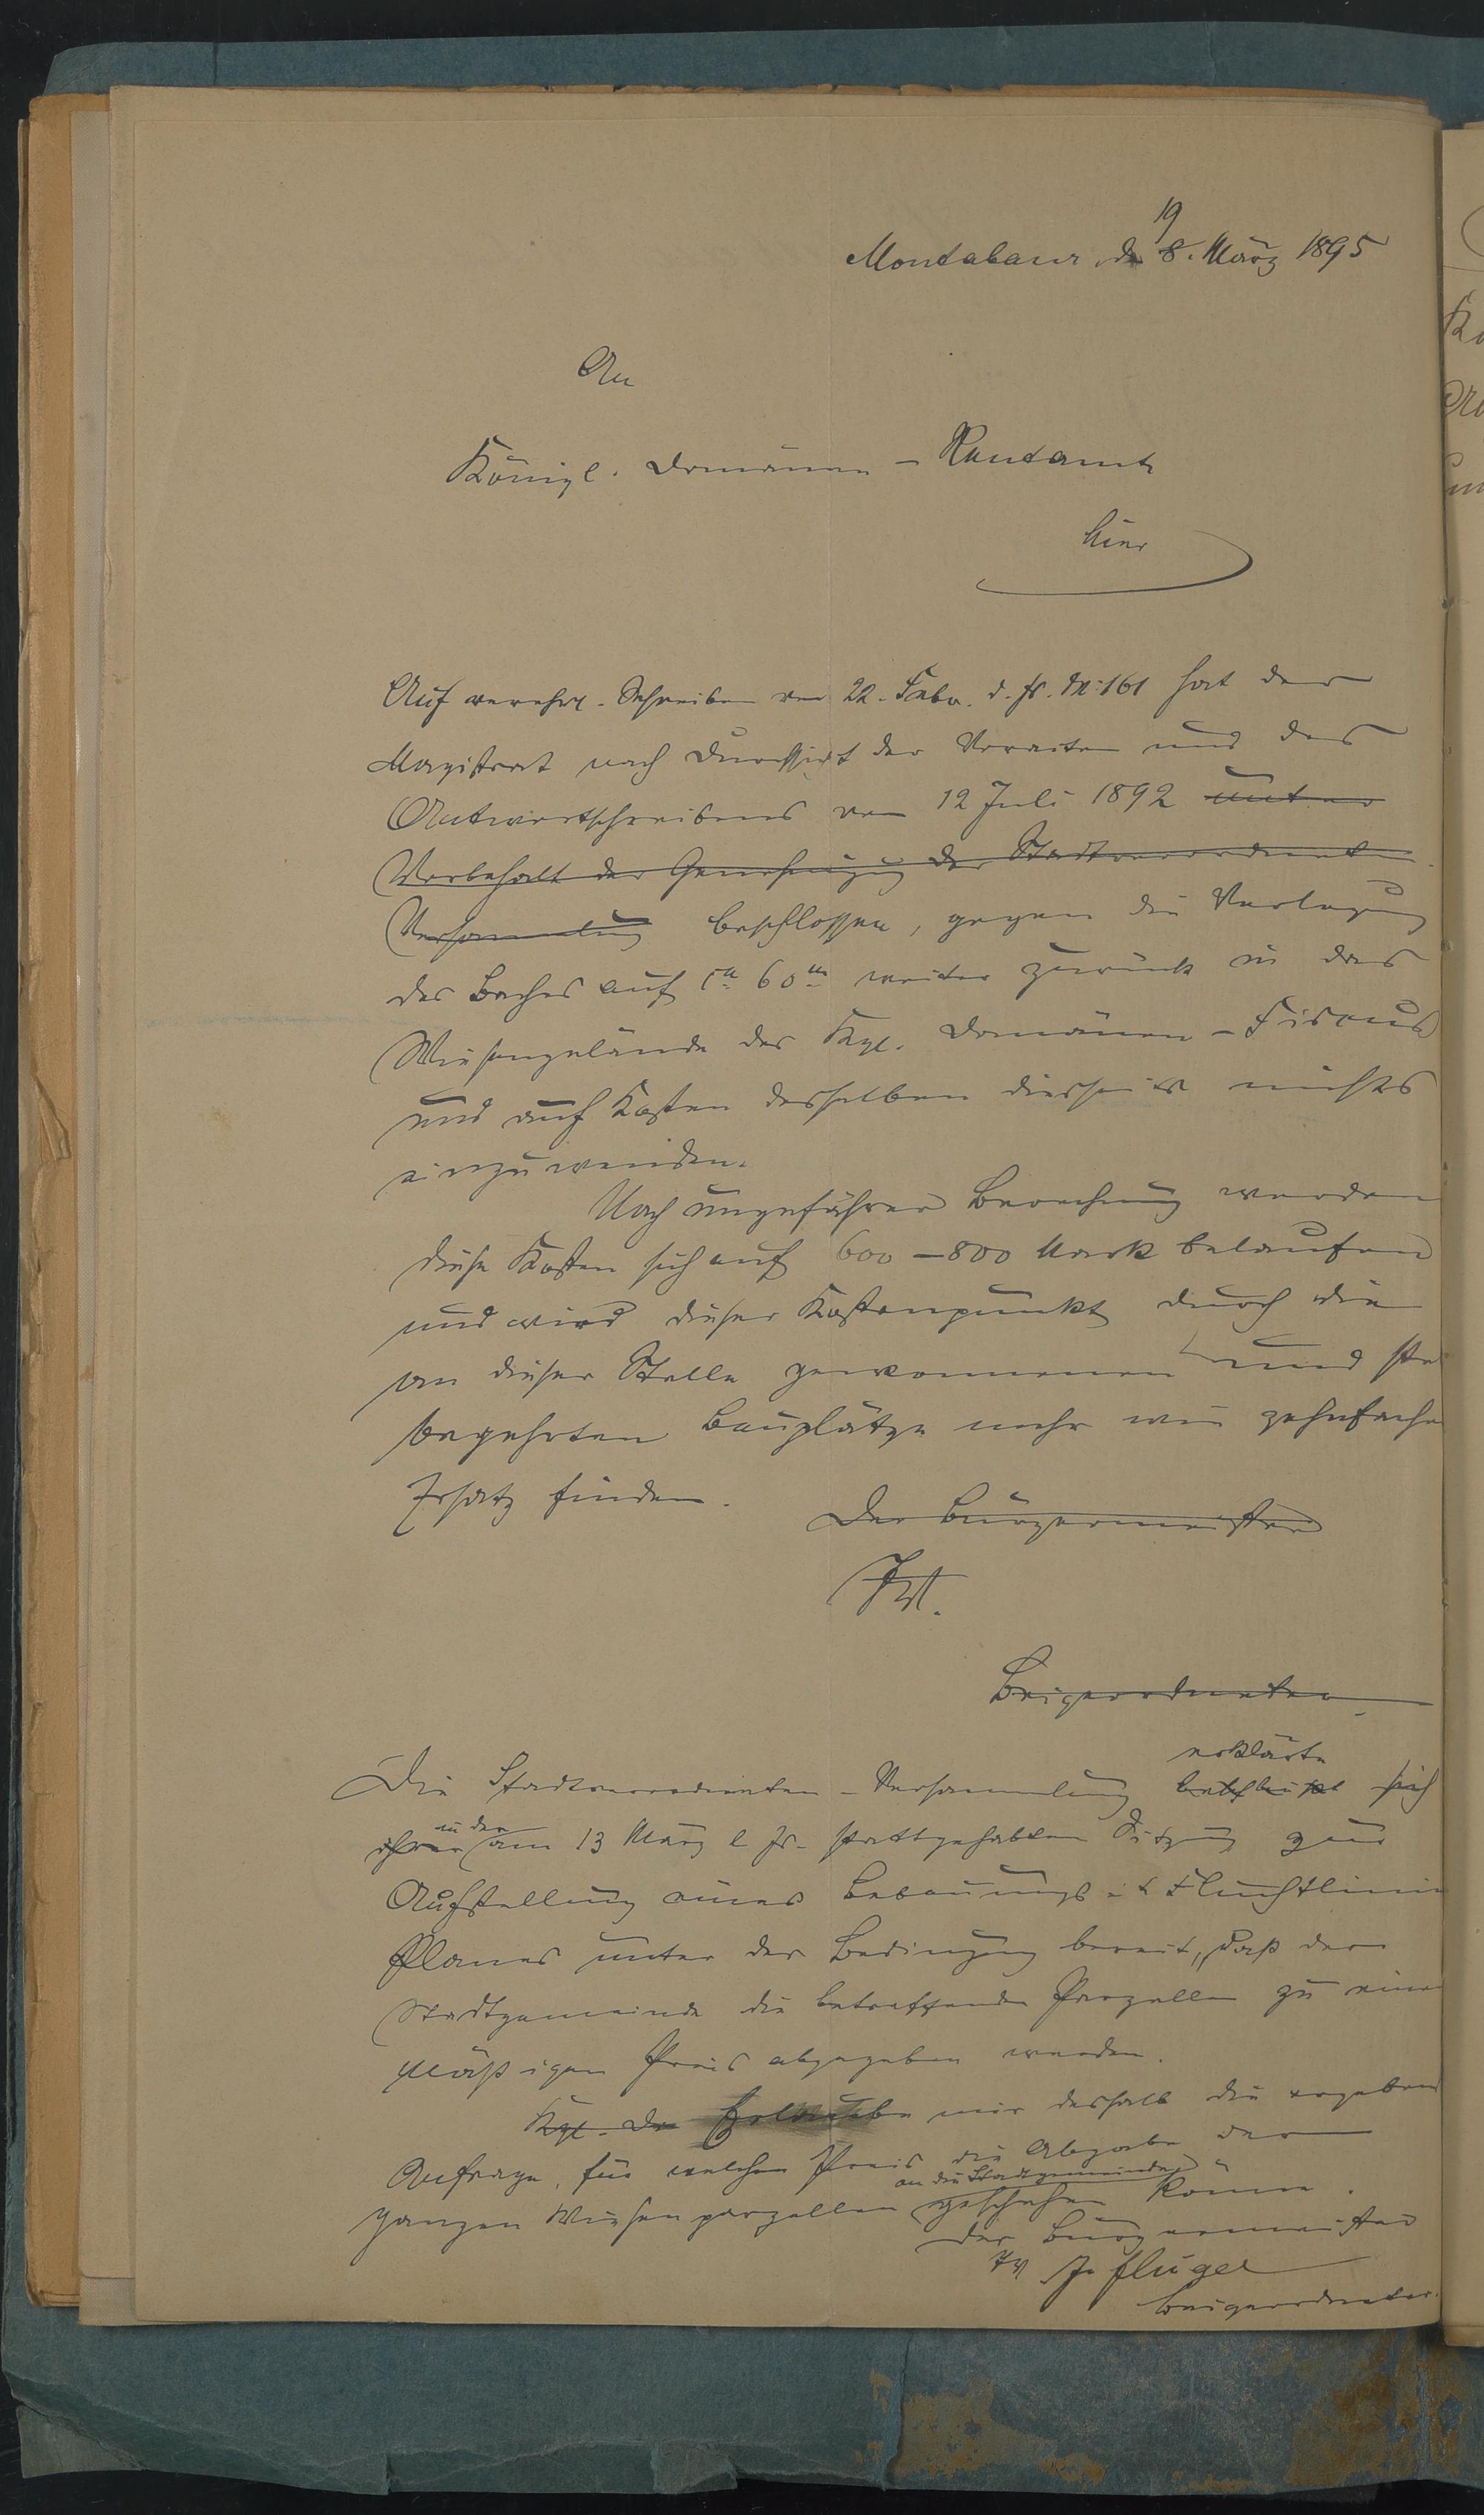 19
Montabaur, den 8. März 1895
An
Königl. Domänen-Rentamt
hier
Auf verehrl. Schreiben vom 22. Febr. d. Js. No 161 hat der
Magistrat nach Durchsicht der Voracten und des
Antwortschreibens vom 12 Juli 1892 unter
Vorbehalt der Genehmigung der Stadtverordneten
Versammlung beschlossen, gegen die Verlegung
des Baches auf ca 60m weiter zurück in das
Wiesengelände des Kgl. Domänen-Fiscus
und auf Kosten desselben diesseits nichts
einzuwenden.
Nach ungefährer Berechnung werden
diese Kosten sich auf 600-800 Mark belaufen
und wird dieser Kostenpunkt durch die
an dieser Stelle gewonnenen und
begehrten Bauplätze mehr wie zehnfache
Ersatz finden.
Der Bürgermeister
J.V.
Beigeordneter
erklärte
Die Stadtverordneten-Versammlung sich
in der
ihrer am 13 März l Js. stattgehabten Sitzung zur
Aufstellung eines Bebauungs- u. Fluchtlinien
Planes unter der Bedingung bereit, daß der
Stadtgemeinde die betreffenden Parzellen zu einem
mäßigen Preis abgegeben werden.
Kgl. Do erlauben wir deshalb die ergebene
Anfrage, für welchen Preis die Abgabe der
an die Stadtgemeinde
ganzen Wiesenparzellen geschehen könne.
Der Bürgermeister
JV J. Flügel
Beigeordneter.